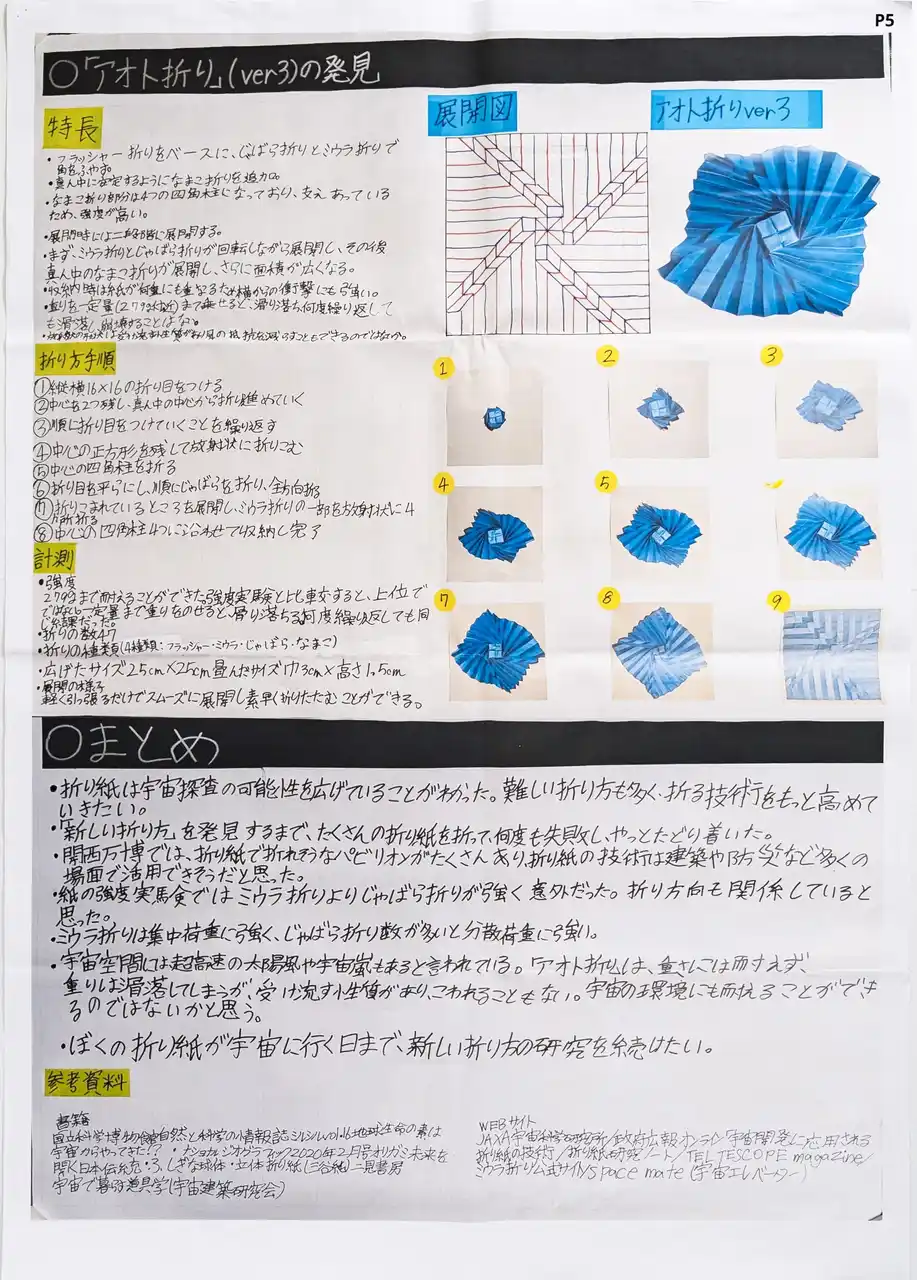 P5
○「アオト折り」(ver3)の発見
特長
・フラッシャー折りをベースに、じゃばら折りとミウラ折りで
角をふやす。
・真ん中に安定するようになまこ折りを追加。
・なまこ折り部分は4つの四角柱になっており、支えあっている
ため、強度が高い。
・展開時には二段階に展開する。
・まず、ミウラ折りとじゃばら折りが回転しながら展開し、その後
真ん中のなまこ折りが展開し、さらに面積が広くなる。
・収納時は紙が何重にも重なるため横からの衝撃にも強い。
・重りを一定量(279g付近)まで乗せると、滑り落ち何度繰り返して
も滑落し崩壊することはない。
展開図
アオト折りver3
折り方手順
①縦横16×16の折り目をつける
②中心を2つ残し、真ん中の中心から折り進めていく
③順に折り目をつけていくことを繰り返す
④中心の正方形を残して放射状に折りこむ
⑤中心の四角柱を折る
⑥折り目を平らにし、順にじゃばらを折り、全方向折る
⑦折りこまれているところを展開し、ミウラ折りの一部を放射状に4
カ所折る
⑧中心の四角柱4つに沿わせて収納し完了
1
2
3
4
5
7
8
9
計測
・強度
279gまで耐えることができた。強度実験と比較すると、上位で
ではない。一定量まで重りをのせると、滑り落ちる。何度繰り返しても同
じ結果だった。
・折りの数47
・折りの種類(4種類:フラッシャー・ミウラ・じゃばら・なまこ)
・広げたサイズ25cm×25cm畳んだサイズ巾3cm×高さ1.5cm
・展開の様子
軽く引っ張るだけでスムーズに展開し素早く折りたたむことができる。
○まとめ
・折り紙は宇宙探査の可能性を広げていることがわかった。難しい折り方も多く、折る技術をもっと高めて
いきたい。
・「新しい折り方」を発見するまで、たくさんの折り紙を折って、何度も失敗し、やっとたどり着いた。
・関西万博では、折り紙で折れそうなパビリオンがたくさんあり折り紙の技術は建築や防災など多くの
場面で活用できそうだと思った。
・紙の強度実験ではミウラ折りよりじゃばら折りが強く意外だった。折り方向も関係していると
思った。
・ミウラ折りは集中荷重に強く、じゃばら折り数が多いと分散荷重に強い。
・宇宙空間には超高速の太陽風や宇宙嵐もあると言われている。「アオト折り」は、重さには耐えず、
重りは滑落してしまうが、受け流す性質があり、こわれることもない。宇宙の環境にも耐えることができ
るのではないかと思う。
・ぼくの折り紙が宇宙に行く日まで、新しい折り方の研究を続けたい。
参考資料
書籍
国立科学博物館自然と科学の情報誌ミルシル 地球生命の素は
宇宙からやってきた!?・ナショナルジオグラフィック2020年2月号オリガミ未来を
開く日本伝統・ふしぎな球体・立体折り紙(三谷純)二見書房
宇宙で暮らす道具学(宇宙建築研究会)
WEBサイト
JAXA宇宙科学研究所/政府広報オンライン「宇宙開発に応用される
折り紙の技術」/折り紙研究ノート/TEL TESCOPE magazine/
ミウラ折り公式サイト/space mate(宇宙エレベーター)